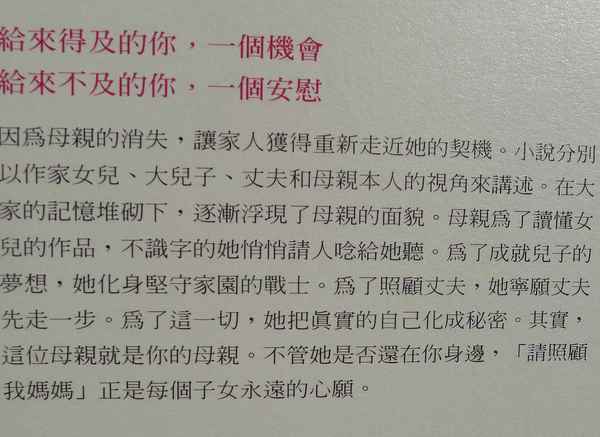 給來得及的你，一個機會
給來不及的你，一個安慰
因為母親的消失，讓家人獲得重新走近她的契機。小說分別
以作家女兒、大兒子、丈夫和母親本人的視角來講述。在大
家的記憶堆砌下，逐漸浮現了母親的面貌。母親為了讀懂女
兒的作品，不識字的她悄悄請人唸給她聽。為了成就兒子的
夢想，她化身堅守家園的戰士。為了照顧丈夫，她寧願丈夫
先走一步。為了這一切，她把眞實的自己化成秘密。其實，
這位母親就是你的母親。不管她是否還在你身邊，「請照顧
我媽媽」正是每個子女永遠的心願。